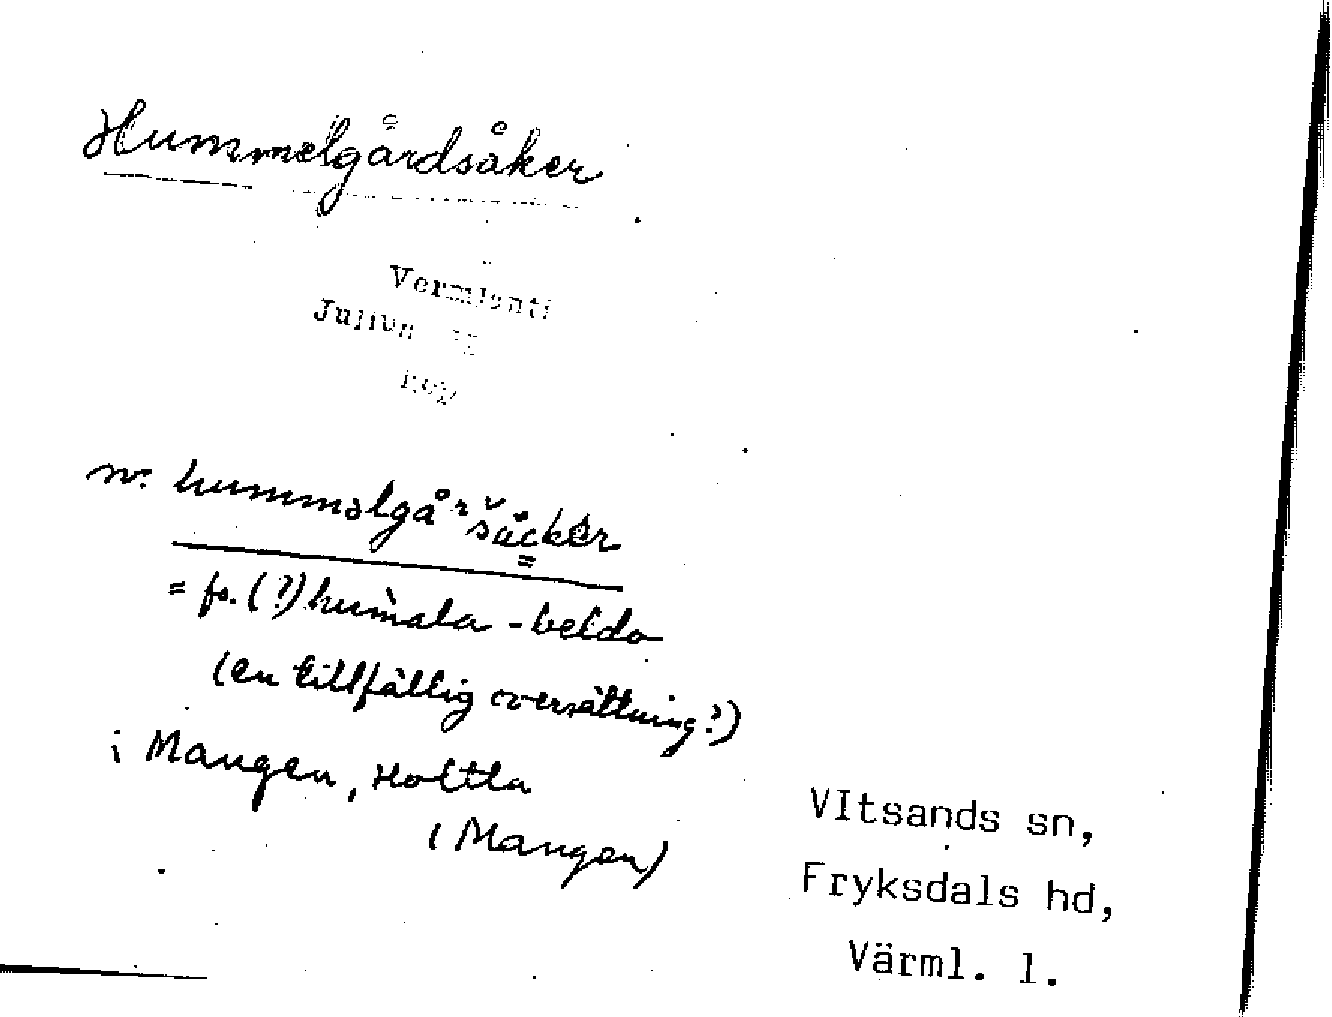 Hummelgårdsåker
Julius
n. humməlgår šåckər
= fs. (?) humala - beldo
(en tillfällig översättning?)
i Mangen, Holtta
(Mangen)
VItsands sn,
Fryksdals hd,
Värml. l.